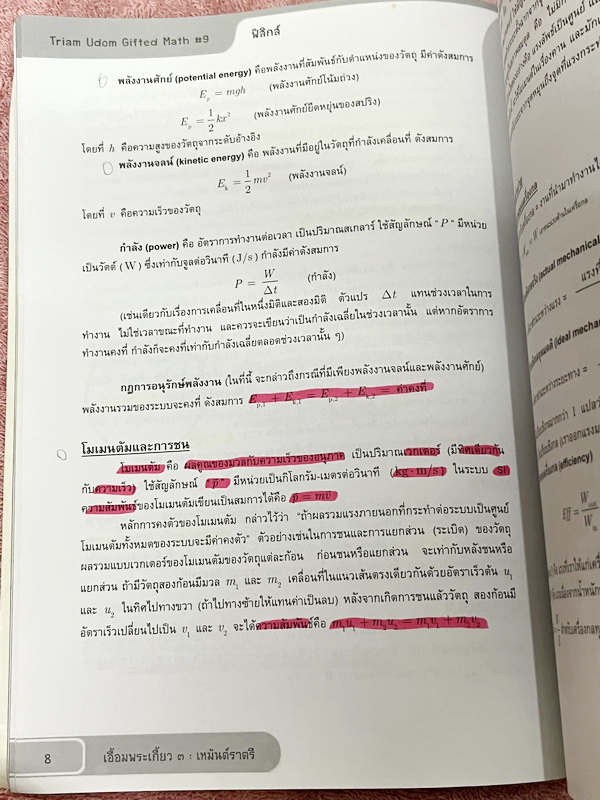 Triam Udom Gifted Math #9
ฟิสิกส์
พลังงานศักย์ (potential energy) คือพลังงานที่สัมพันธ์กับตำแหน่งของวัตถุ มีค่าดังสมการ
E_p = mgh (พลังงานศักย์โน้มถ่วง)
E_p = 1/2 kx² (พลังงานศักย์ยืดหยุ่นของสปริง)
โดยที่ h คือความสูงของวัตถุจากระดับอ้างอิง
พลังงานจลน์ (kinetic energy) คือ พลังงานที่มีอยู่ในวัตถุที่กำลังเคลื่อนที่ ดังสมการ
E_k = 1/2 mv² (พลังงานจลน์)
โดยที่ v คือความเร็วของวัตถุ
กำลัง (power) คือ อัตราการทำงานต่อเวลา เป็นปริมาณสเกลาร์ ใช้สัญลักษณ์ "P" มีหน่วย
เป็นวัตต์ (W) ซึ่งเท่ากับจูลต่อวินาที (J/s) กำลังมีค่าดังสมการ
P = W/Δt (กำลัง)
(เช่นเดียวกับเรื่องการเคลื่อนที่ในหนึ่งมิติและสองมิติ ตัวแปร Δt แทนช่วงเวลาในการ
ทำงาน ไม่ใช่เวลาขณะที่ทำงาน และควรจะเขียนว่าเป็นกำลังเฉลี่ยในช่วงเวลานั้น แต่หากอัตราการ
ทำงานคงที่ กำลังก็จะคงที่เท่ากับกำลังเฉลี่ยตลอดช่วงเวลานั้น ๆ)
กฎการอนุรักษ์พลังงาน (ในที่นี้ จะกล่าวถึงกรณีที่มีเพียงพลังงานจลน์และพลังงานศักย์)
พลังงานรวมของระบบจะคงที่ ดังสมการ E_p,1 + E_k,1 = E_p,2 + E_k,2 = ค่าคงที่
โมเมนตัมและการชน
โมเมนตัม คือ ผลคูณของมวลกับความเร็วของอนุภาค เป็นปริมาณเวกเตอร์ (มีทิศเดียวกัน
กับความเร็ว) ใช้สัญลักษณ์ "p⃗" มีหน่วยเป็นกิโลกรัม-เมตรต่อวินาที (kg·m/s) ในระบบ SI
ความสัมพันธ์ของโมเมนตัมเขียนเป็นสมการได้คือ p⃗ = mv⃗
หลักการคงตัวของโมเมนตัม กล่าวไว้ว่า "ถ้าผลรวมแรงภายนอกที่กระทำต่อระบบเป็นศูนย์
โมเมนตัมทั้งหมดของระบบจะมีค่าคงตัว" ตัวอย่างเช่นในการชนและการแยกส่วน (ระเบิด) ของวัตถุ
ผลรวมแบบเวกเตอร์ของโมเมนตัมของวัตถุแต่ละก้อน ก่อนชนหรือแยกส่วน จะเท่ากับหลังชนหรือ
แยกส่วน ถ้ามีวัตถุสองก้อนมีมวล m₁ และ m₂ เคลื่อนที่ในแนวเส้นตรงเดียวกันด้วยอัตราเร็วต้น u₁
และ u₂ ในทิศไปทางขวา (ถ้าไปทางซ้ายให้แทนค่าเป็นลบ) หลังจากเกิดการชนแล้ววัตถุ สองก้อนมี
อัตราเร็วเปลี่ยนไปเป็น v₁ และ v₂ จะได้ความสัมพันธ์คือ m₁u₁ + m₂u₂ = m₁v₁ + m₂v₂
8
เอื้อมพระเกี้ยว ๓ : เหมันต์ราตรี
(actual mechanical
(ideal mechanical
(efficiency)